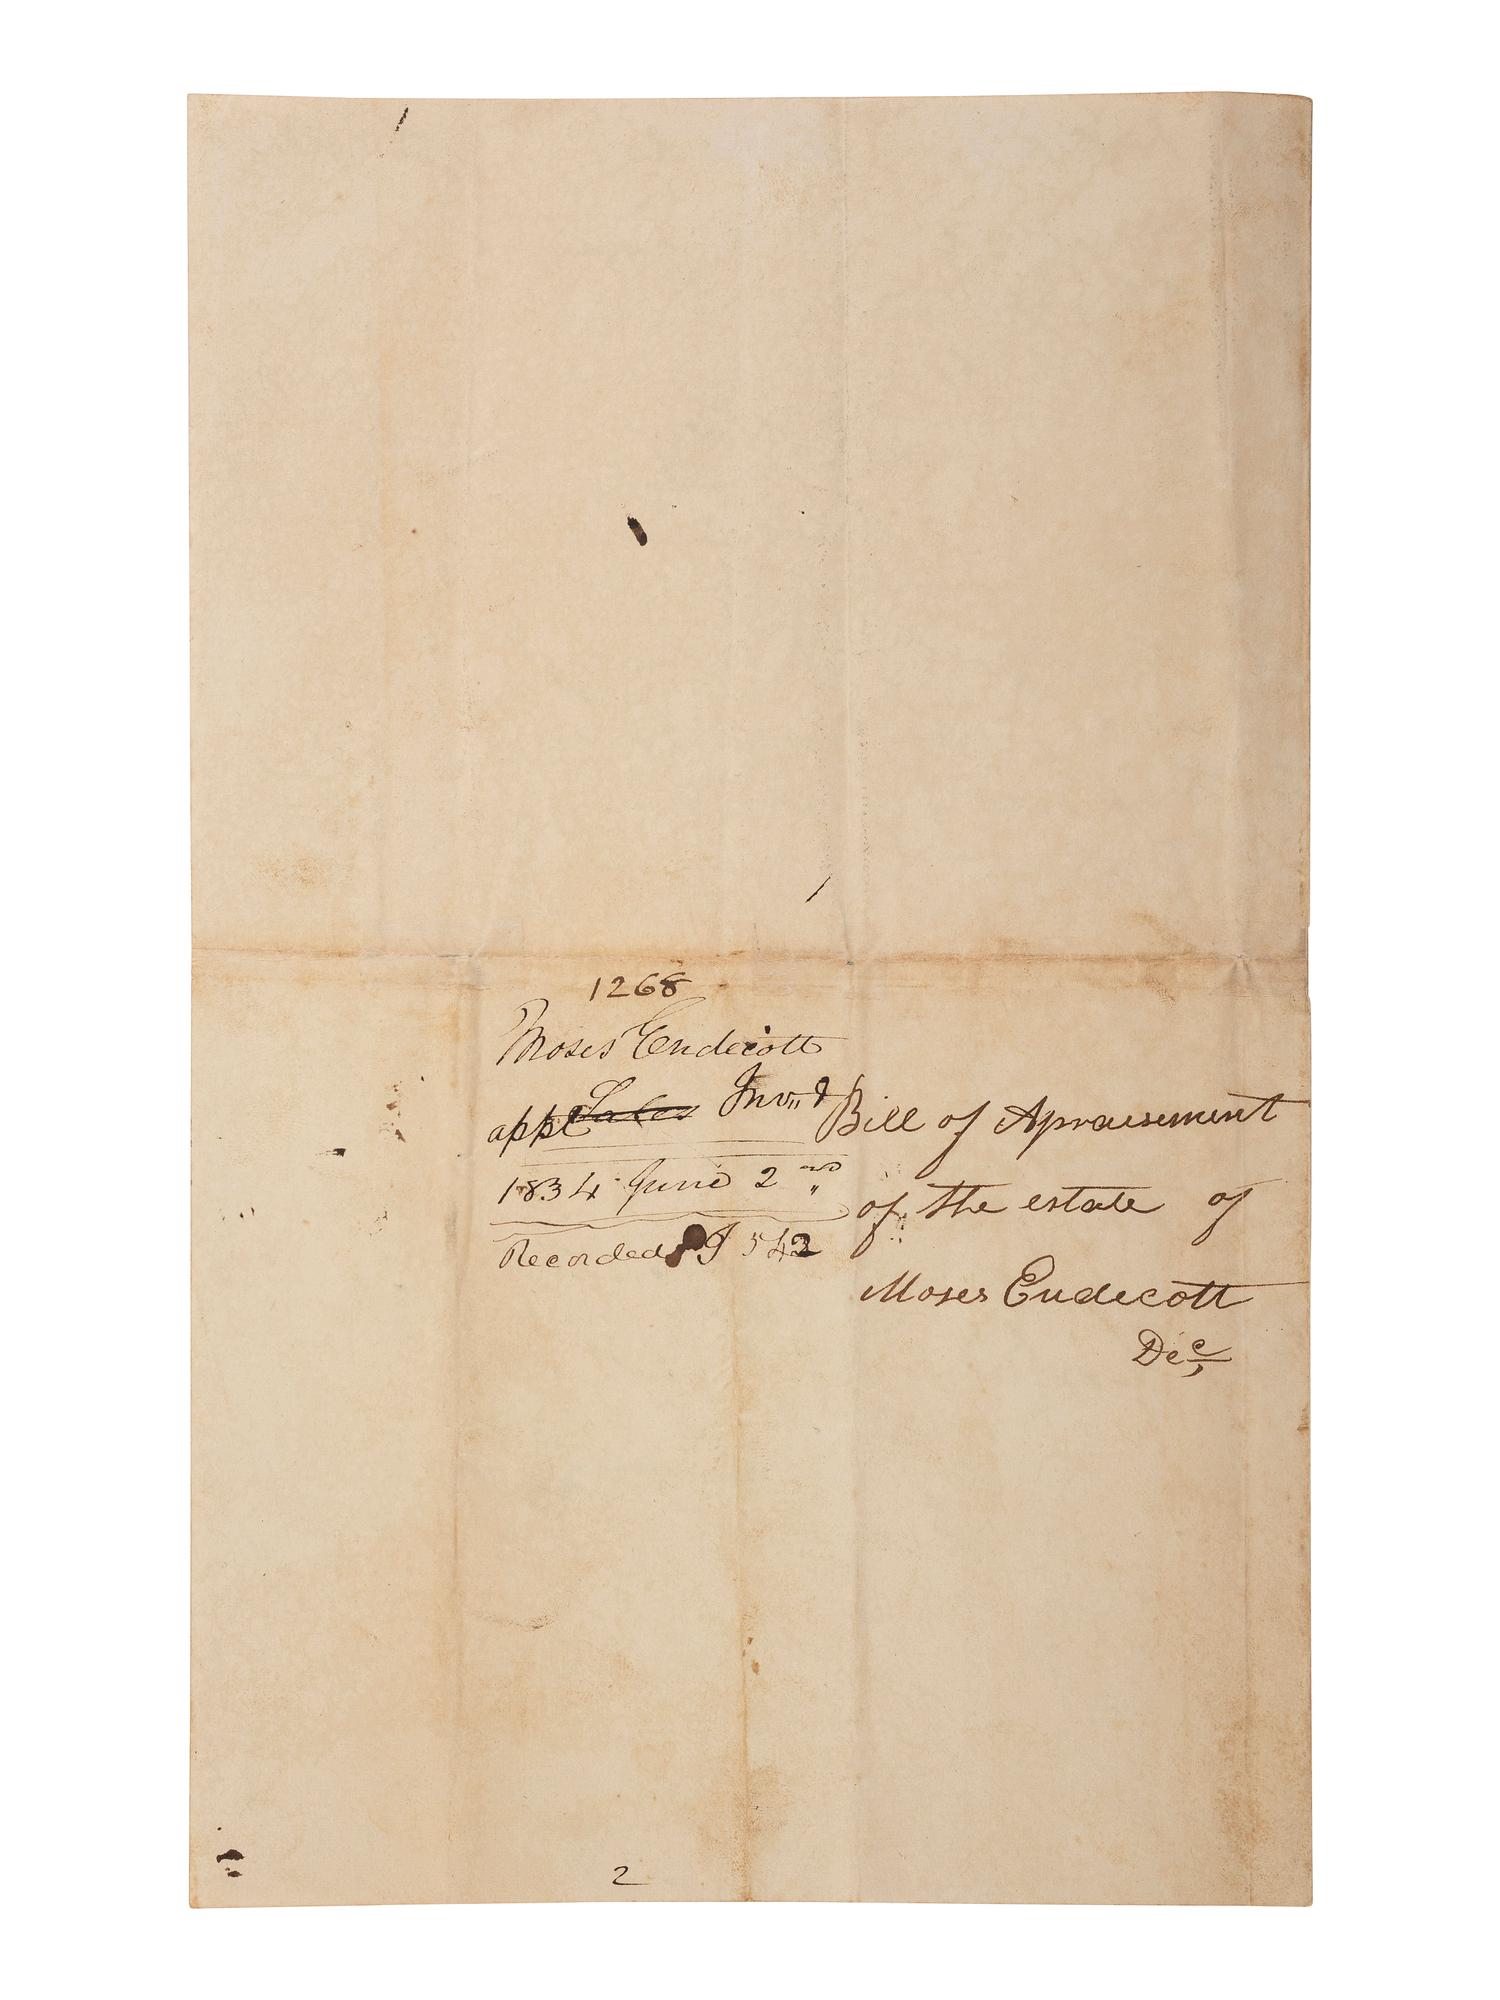 1268
Moses Endecott
appt ~~Sales~~ Inv,,t
1834 June 2nd
Recorded J 542
Bill of Apraisement
of the estate of
Moses Endecott
Dec
2